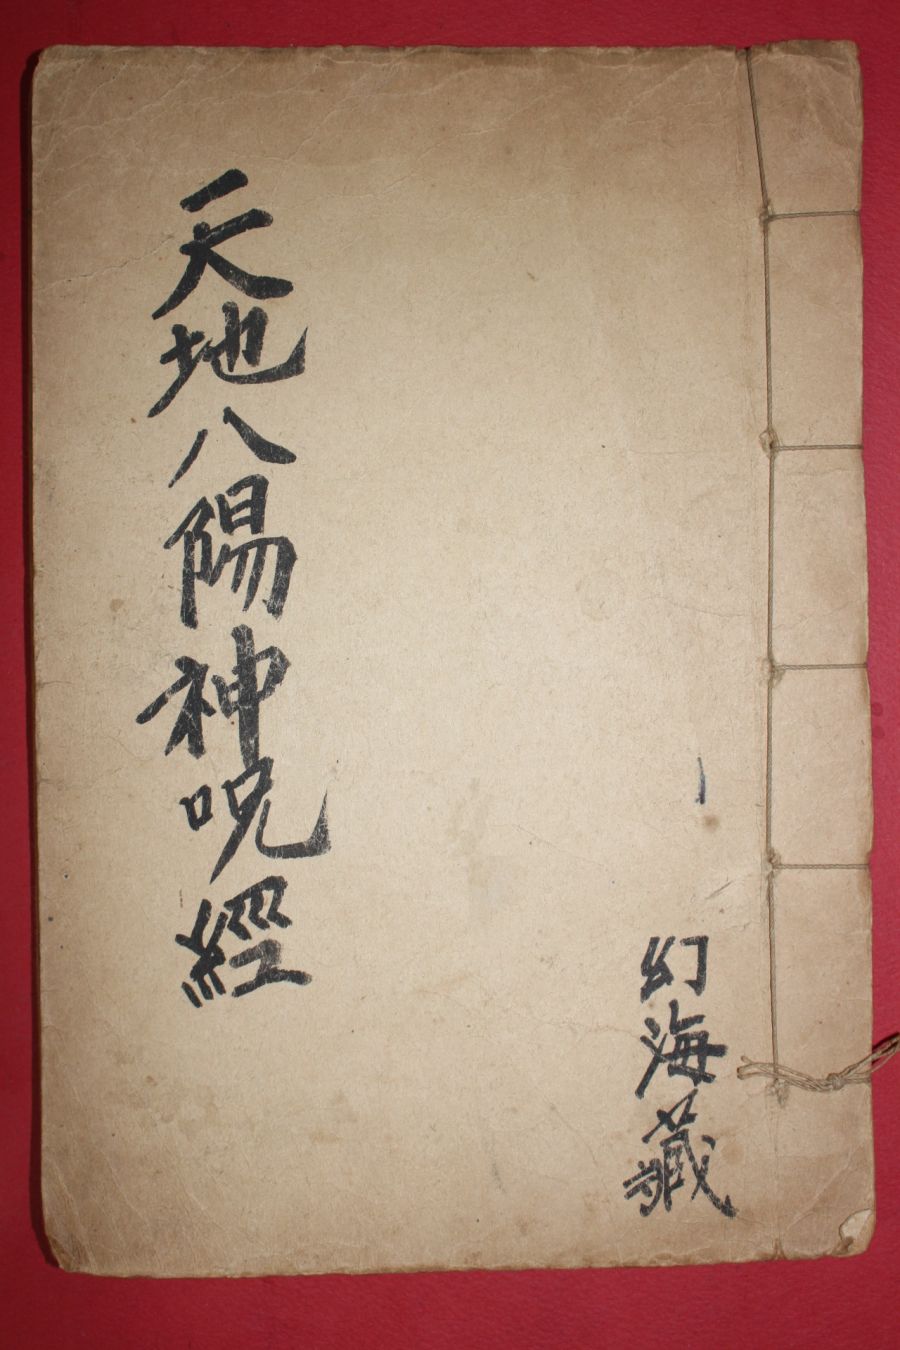 幻海藏
天地八陽神呪經